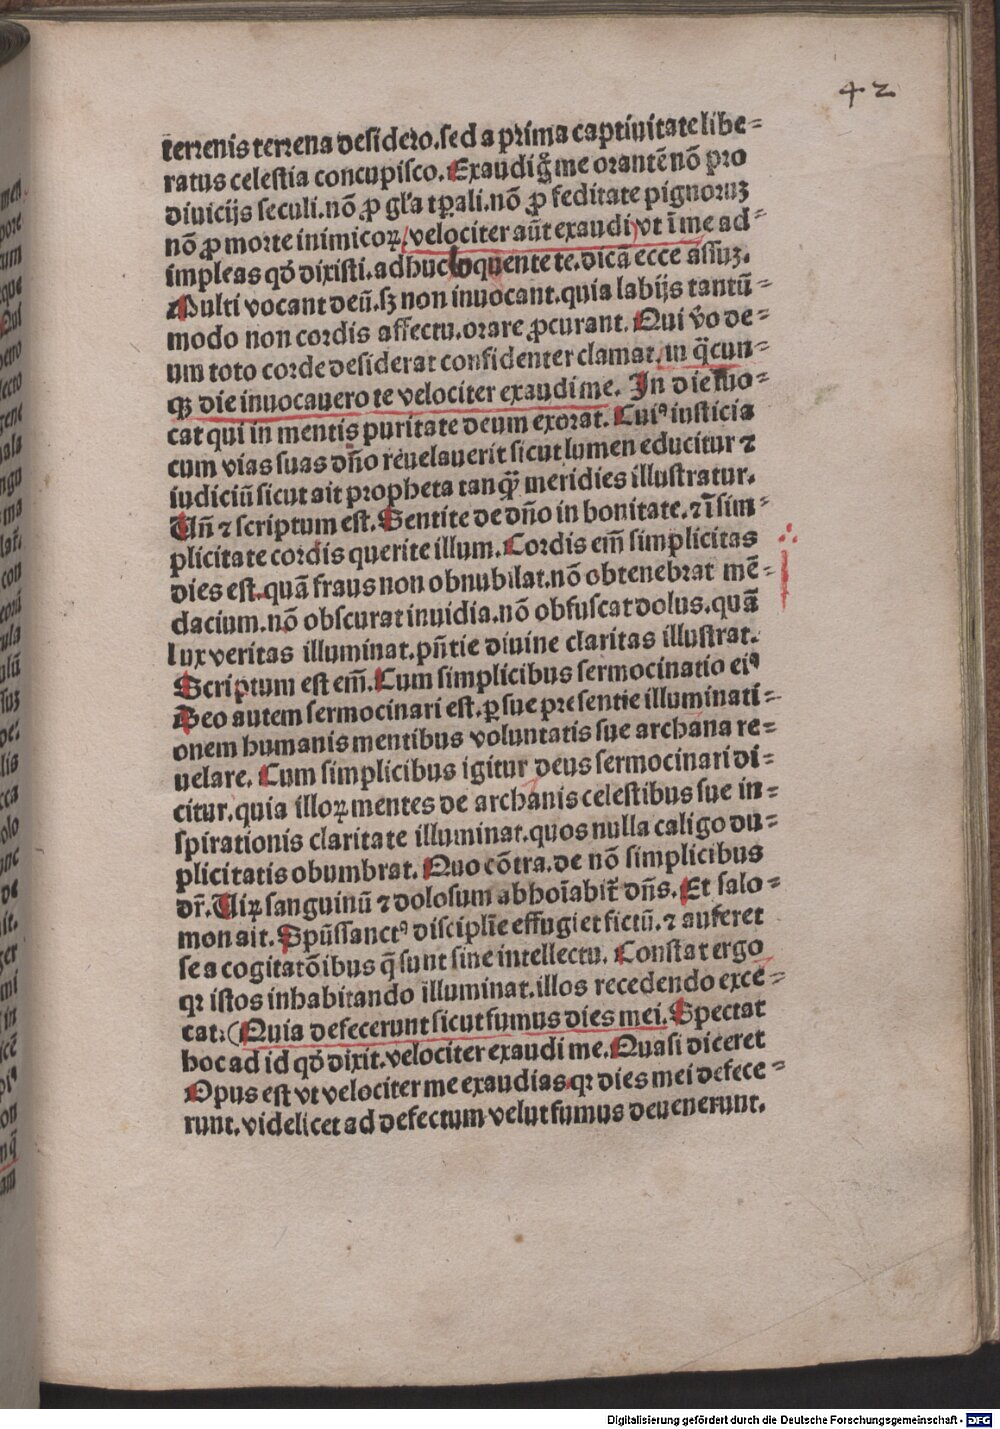 42
terrenis terrena desidero. sed a prima captiuitate libe⸗
ratus celestia concupisco. Exaudi g̃ me orantē nō pro
diuicijs seculi. nō ꝓ gl'a tꝑali. nō ꝓ feditate pignoruꝫ
nō ꝓ morte inimicoꝝ. velociter aūt exaudi) vt ī me ad⸗
impleas qd̛ dixisti. adhuc loquente te. dicā ecce assuꝫ.
Multi vocant deū. sꝫ non inuocant. quia labijs tantū⸗
modo non cordis affectu. orare ꝓcurant. Qui v̛o de⸗
um toto corde desiderat confidenter clamat. in q̄cun⸗
qꝫ die inuocauero te velociter exaudi me. In die inuo⸗
cat qui in mentis puritate deum exorat. Cuiꝰ iusticia
cum vias suas dn̄o reuelauerit sicut lumen educitur ⁊
iudiciū sicut ait propheta tanqꝫ̄ meridies illustratur.
Un̄ ⁊ scriptum est. Sentite de dn̄o in bonitate. ⁊ ī sim⸗
plicitate cordis querite illum. Cordis em̄ simplicitas
dies est. quā fraus non obnubilat. nō obtenebrat mē⸗
dacium. nō obscurat inuidia. nō obfuscat dolus. quā
lux veritas illuminat. pn̄tie diuine claritas illustrat.
Scriptum est em̄. Cum simplicibus sermocinatio eiꝰ
Deo autem sermocinari est. ꝑ sue presentie illuminati⸗
onem humanis mentibus voluntatis sue archana re⸗
uelare. Cum simplicibus igitur deus sermocinari di⸗
citur. quia illoꝝ mentes de archanis celestibus sue in⸗
spirationis claritate illuminat. quos nulla caligo du⸗
plicitatis obumbrat. Quo cōtra. de nō simplicibus
dr̄. Uiꝝ sanguinū ⁊ dolosum abhoīabit̛ dn̄s. Et salo⸗
mon ait. Spūssanctꝰ disciplīe effugiet fictū. ⁊ auferet
se a cogitatōibus q̄ sunt sine intellectu. Constat ergo
qꝛ istos inhabitando illuminat. illos recedendo exce⸗
cat. (Quia defecerunt sicut fumus dies mei. Spectat
hoc ad id qd̛ dixit. velociter exaudi me. Quasi diceret
Opus est vt velociter me exaudias qꝛ dies mei defece⸗
runt. videlicet ad defectum velut fumus deuenerunt.
Digitalisierung gefördert durch die Deutsche Forschungsgemeinschaft - DFG